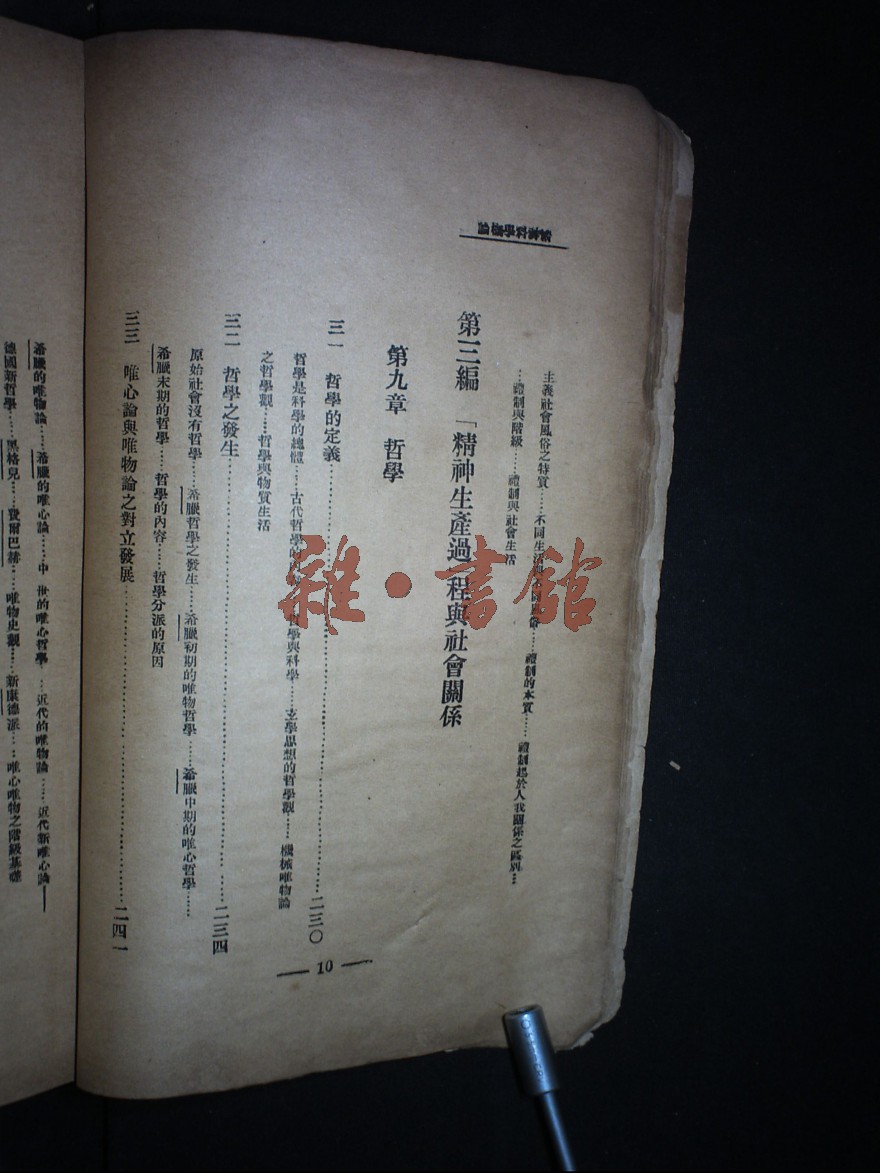 主義社會風俗之特質……不同生活……禮制的本質……禮制起於人我關係之區別…
…禮制與階級……禮制與社會生活
第三編 「精神生產過程與社會關係
第九章 哲學
三一 哲學的定義……二三〇
哲學是科學的總體……古代哲學的……哲學與科學……玄學思想的哲學觀……機械唯物論
之哲學觀……哲學與物質生活
三二 哲學之發生……二三四
原始社會沒有哲學……希臘哲學之發生……希臘初期的唯物哲學……希臘中期的唯心哲學……
希臘末期的哲學……哲學的內容……哲學分派的原因
三三 唯心論與唯物論之對立發展……二四一
— 10 —
希臘的唯物論……希臘的唯心論……中世的唯心哲學 近代的唯物論……近代新唯心論—
德國新哲學……黑格兒……費爾巴赫……唯物史觀……新康德派……唯心唯物之階級基礎
雜·書館